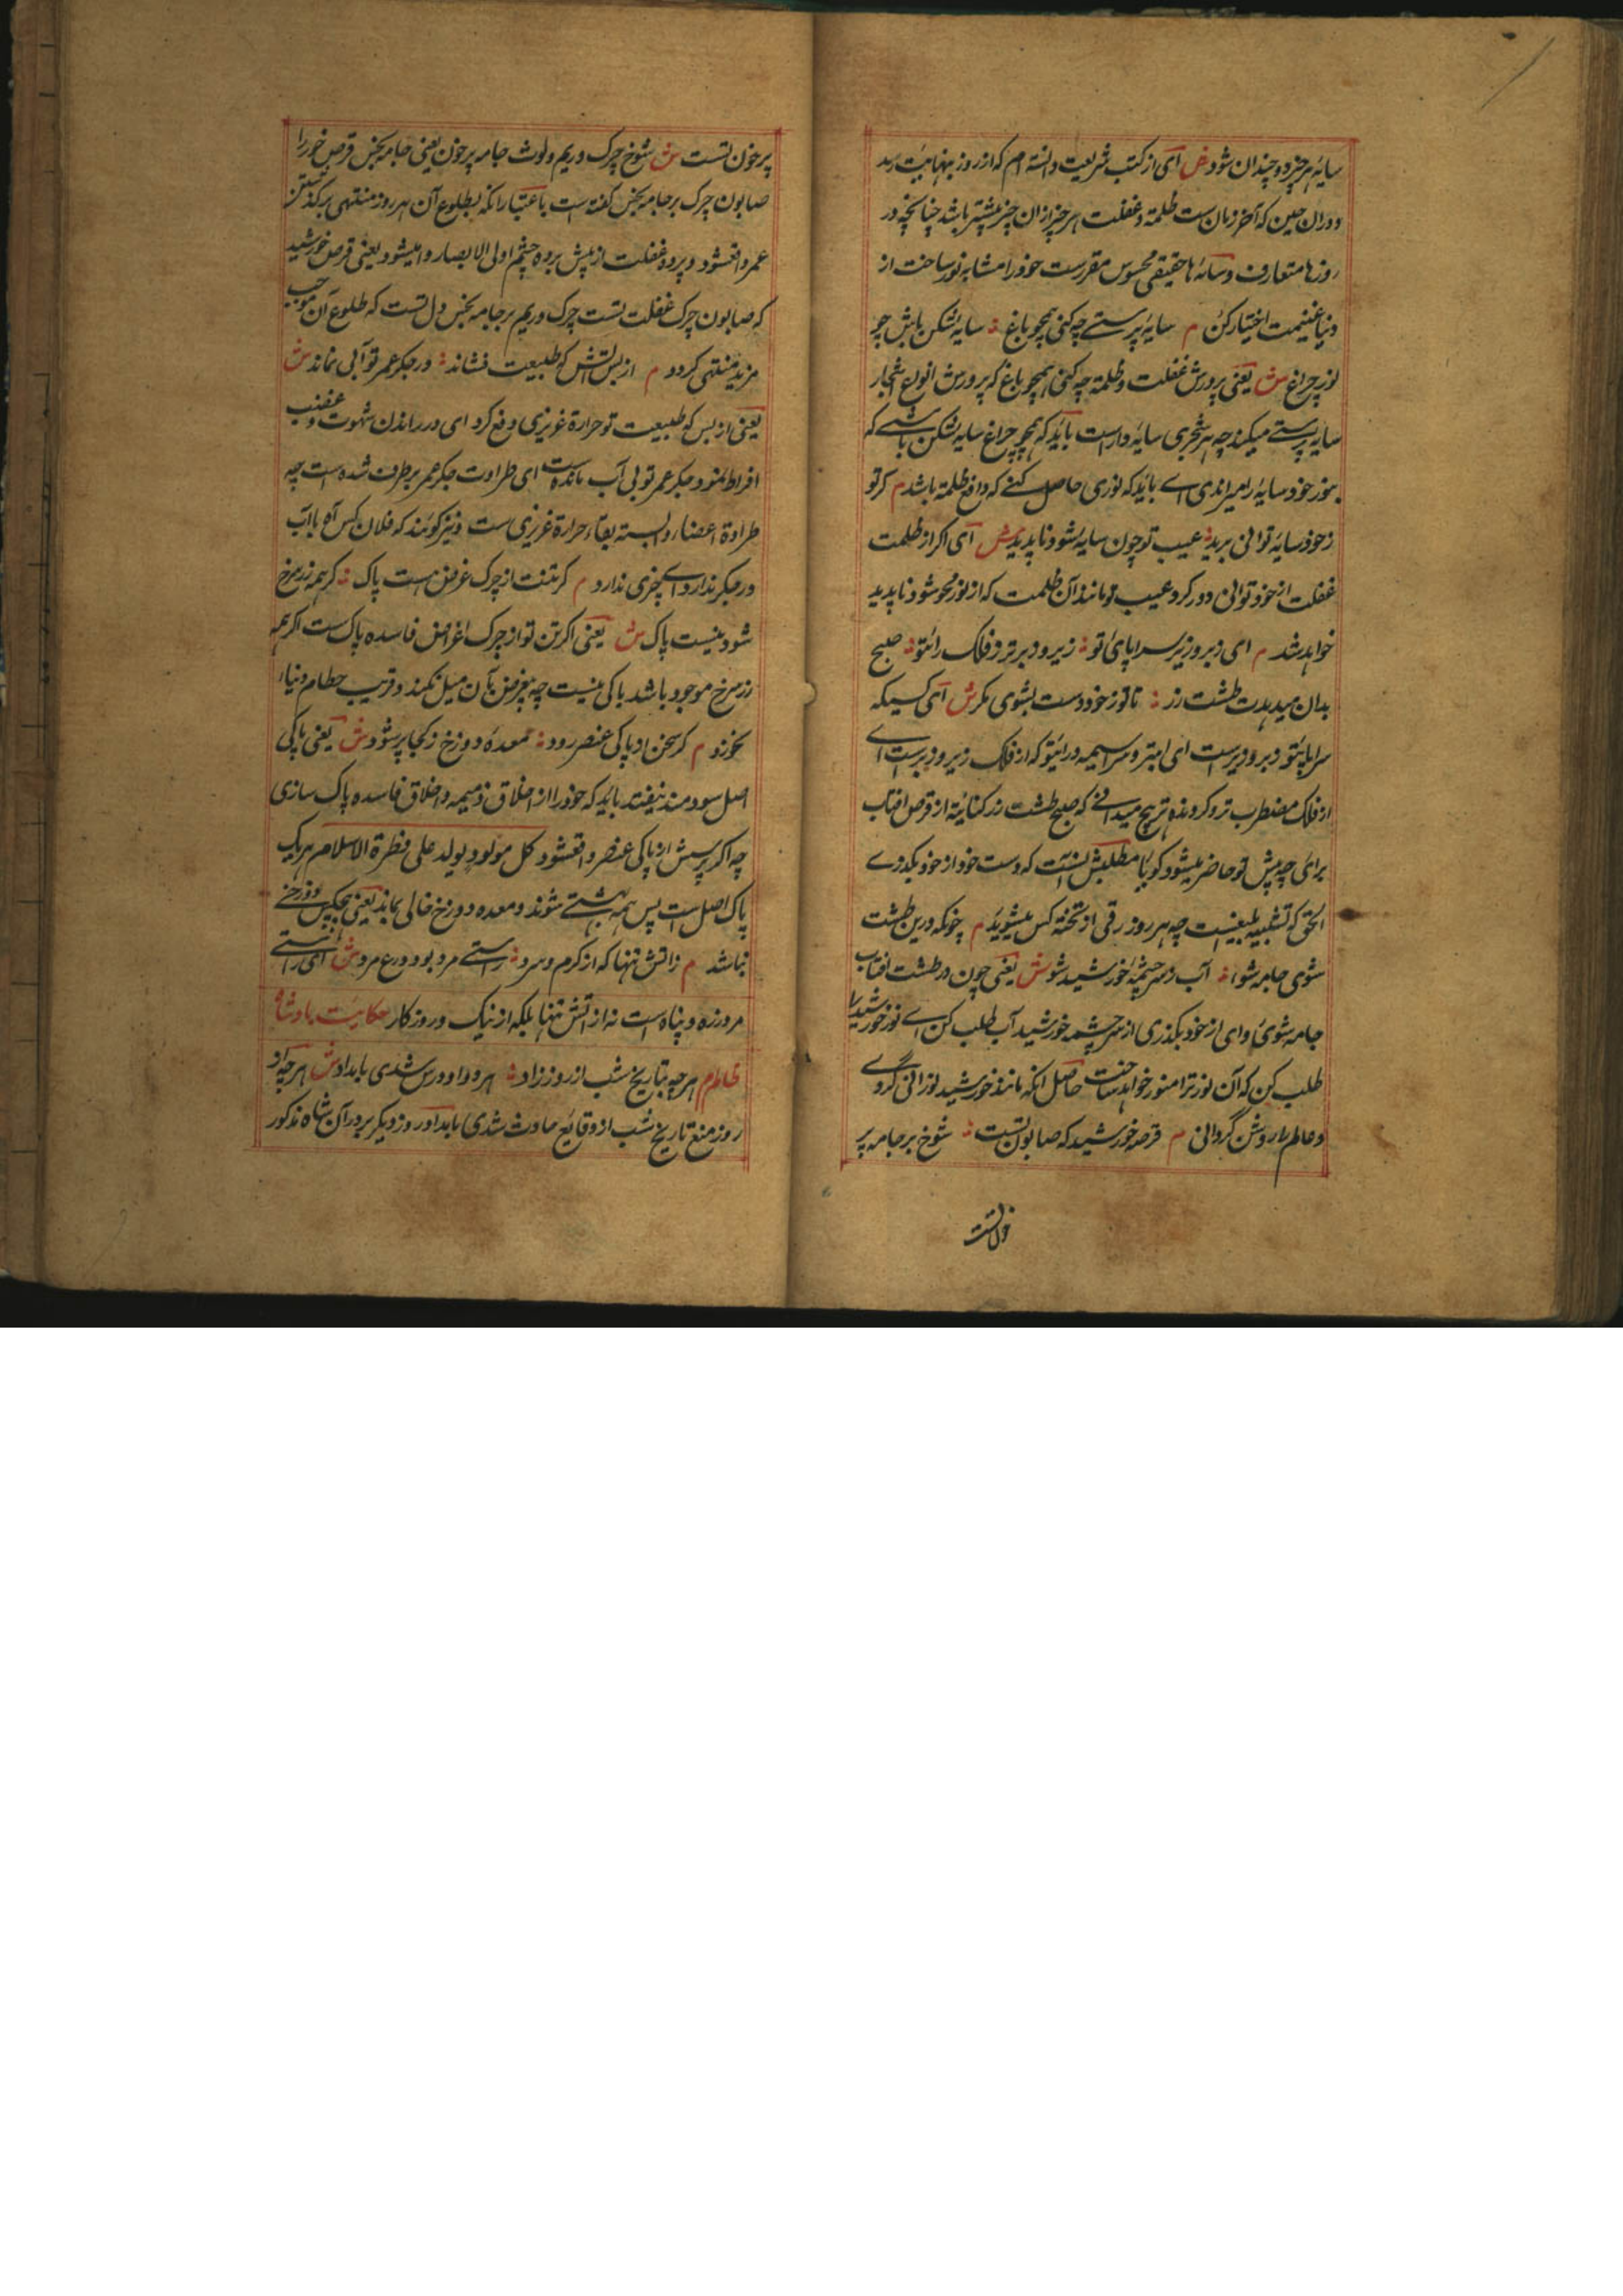 سایه هر چیز دو چندان شود ش ای از کتب شریعت دانسته ام که از روز بنهایت رسد
دوران حین که آخر زمان ست ظلمة و غفلت هر چیز ازان چیز بیشتر باشد چنانچه در
روزها متعارف و سایه ها حقیقی محسوس مقررست خود را مشابه نور ساختن از
دنیا غنیمت اختیار کن م سایه پرستے چه کنی همچو باغ سایه شکن باش چو
نور چراغ ش یعنی پرورش غفلت و ظلمة چه کنی همچو باغ که پرورش انواع اشجار
سایه پرستے میکند چه هر شجری سایه دار ست باید که همچو چراغ سایه شکن باشے که
بنور خود سایه را میراندی اے باید که نوری حاصل کنے که دافع ظلمة باشد م گر تو
ز خود سایه توانی برید عیب تو چون سایه شود ناپدید ش ای اگر از ظلمت
غفلت از خود توانی دور کرد عیب تو مانند آن ظلمت که از نور محو شود ناپدید
خواهد شد م ای زبر و زیر سراپای تو زیر و زبر تر ز فلک رای تو صبح
بدان میدهدت طشت زر تا تو ز خود دست بشوی مگر ش ای کسیکه
سراپای تو زبر و زیر ست ای ابتر و سراسیمه و رای تو که از فلک زیر و زبرست اے
از فلک مضطرب تر و گردنده تر هیچ میدانے که صبح طشت زر کنایة از قرص افتاب
برای چه پیش تو حاضر میشود گویا مطلبش اینست که دست خود از خود بگذرے
الحق که تشبیه بلیغیست چه هر روز رقی از تخته کس میشوید م چونکه درین طشت
شوی جامه شو آب ز سرچشمهٔ خورشید شو ش یعنی چون در طشت افتاب
جامه شوی و ای از خود بگذری از سرچشمه خورشید آب طلب کن اے نور خورشید را
طلب کن که آن نور ترا منور خواهد ساخت حاصل انکه مانند خورشید نورانی گردے
و عالم را روشن گردانی م قرصه خورشید که صابون تست شوخ بر جامه پر
خون تست
پر خون تست ش شوخ چرک و ریم و لوث جامه پر خون یعنی جامه نجس قرص خور را
صابون چرک بر جامه نجس گفته است باعتبار انکه بطلوع آن هر روز منتهی بر گذشتن
عمر واقعشود و پرده غفلت از پیش پرده چشم اولی الابصار وا میشود یعنی قرص خورشید
که صابون چرک غفلت تست چرک و ریم بر جامه نجس دل تست که طلوع آن موجب
مزید منتهی گردد م از بس آتش که طبیعت فشاند در جگر عمر تو آبی نماند ش
یعنی از بس که طبیعت تو حرارة غریزی دفع کرد ای در راندن شهوت و غضب
افراط نمود جگر عمر تو بی آب مانده است ای طراوت جگر عمر برطرف شده ست چه
طراوة اعضا وابسته بقاء حرارة غریزی ست و نیز گویند که فلان کس آه با آب
در جگر ندارد اے چیزی ندارد م گر تنت از چرک غرض هست پاک گر همه زرنیخ
شود نیست باک ش یعنی اگر تن تو از چرک اغراض فاسده پاک ست اگر همه
زر سرخ موجود باشد باکی نیست چه بیغرض بآن میل نکند و فریب حطام دنیا
نخورد م گر سخن از پاکی عنصر رود معدهٔ دوزخ ز کجا پر شود ش یعنی پاکی
اصل سودمند نیفتد باید که خود را از اخلاق ذمیمه و اخلاق فاسده پاک سازی
چه اگر پرسش از پاکی عنصر واقعشود کل مولود یولد علی فطرة الاسلام هر یک
پاک اصل است پس همه بهشتے شوند و معده دوزخ خالی بماند یعنی هیچکس دوزخے
نباشد م ز اتش تنها که از گرم و سرد راستے مرد بود درع مرد ش ای راستے
مرد زره و پناه است نه از اتش تنها بلکه از نیک و روزگار حکایت پادشاه
ظالم م هر چه بتاریخ شب از روز زاد هر دو او درس شدی بامداد ش هر چه از
روز منع تاریخ شب از وقایع حادث شدی بامداد روز دیگر بر در آن شاه مذکور